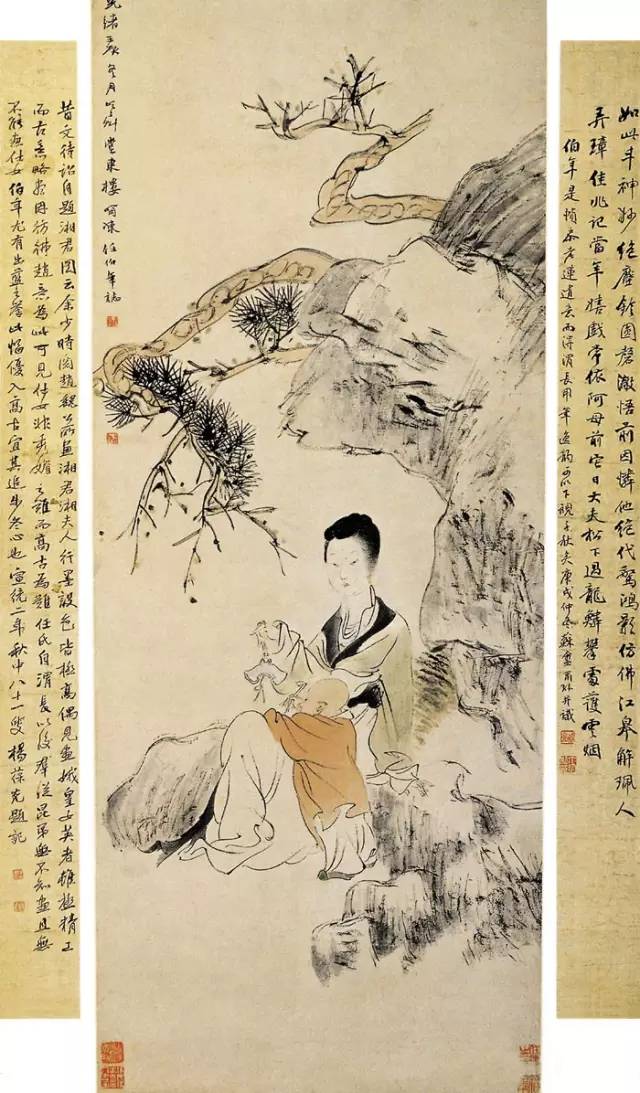 如此丰神妙絕塵圓磬澈悟前因憐他絕代驚鴻影仿佛江皋解珮人
弄璋佳兆記當年嬉戲常依阿母前它日大夫松下過龍鱗攀處護雲烟
伯年是幀老蓮遺意而得渭長用筆遺韵可以下視千秋矣庚戌仲冬蘇盦并識
光緒冬月東樓任伯年
昔文待詔自題湘君圖云余少時閱趙魏公所画湘君湘夫人行墨設色皆極高偶見画娥皇女英者雖極精工
而古意略盡因彷彿趙意為此可見仕女非秀媚之難而高古為難任氏自渭長以後群從昆弟無不知画且無
不能画仕女伯年尤有出藍之譽此幅優入高古宜其追步冬心也宣統二年秋中八十一叟楊葆光題記